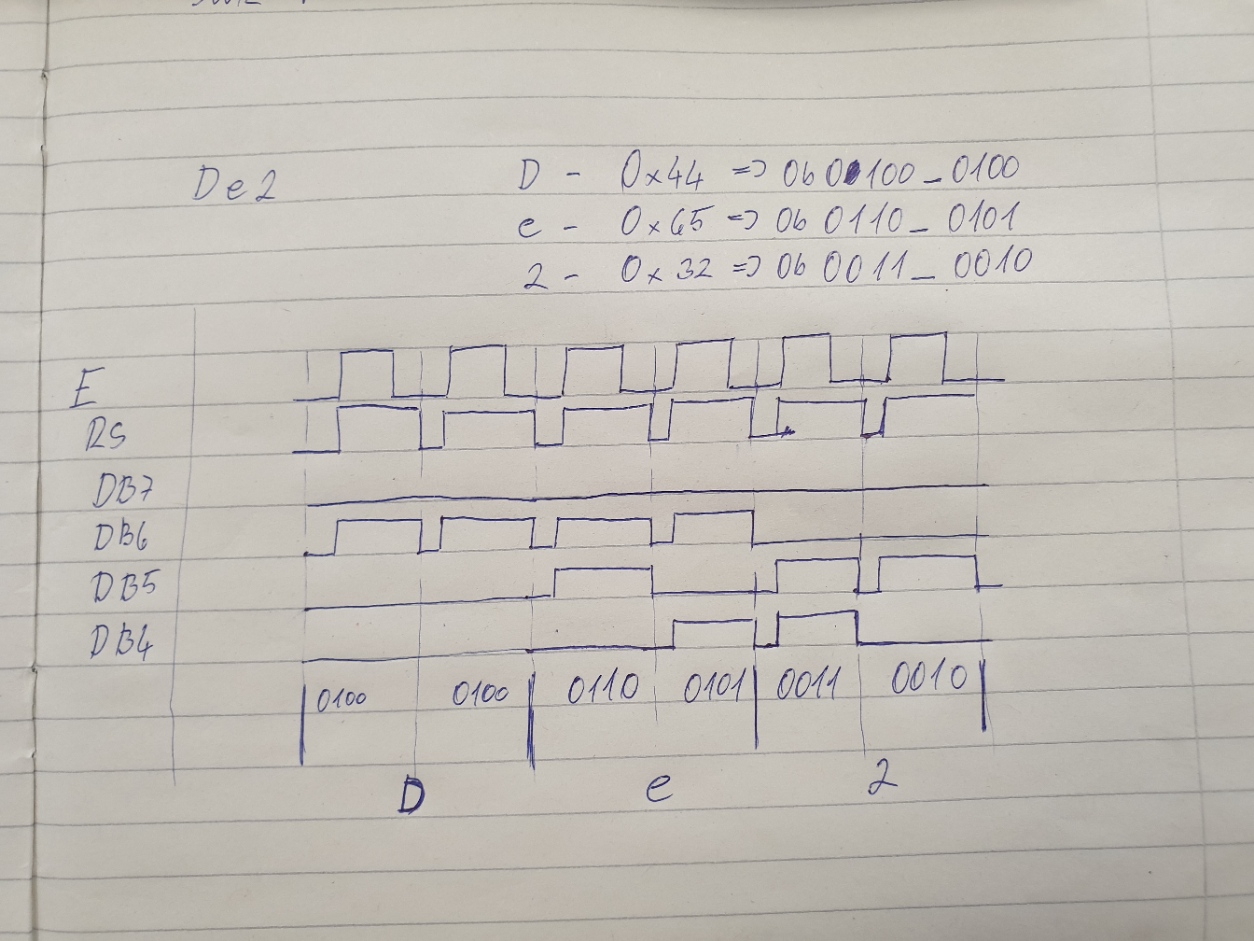 De2
D - 0x44 => 0b 0100_0100
e - 0x65 => 0b 0110_0101
2 - 0x32 => 0b 0011_0010
E
RS
DB7
DB6
DB5
DB4
0100 0100 0110 0101 0011 0010
D e 2